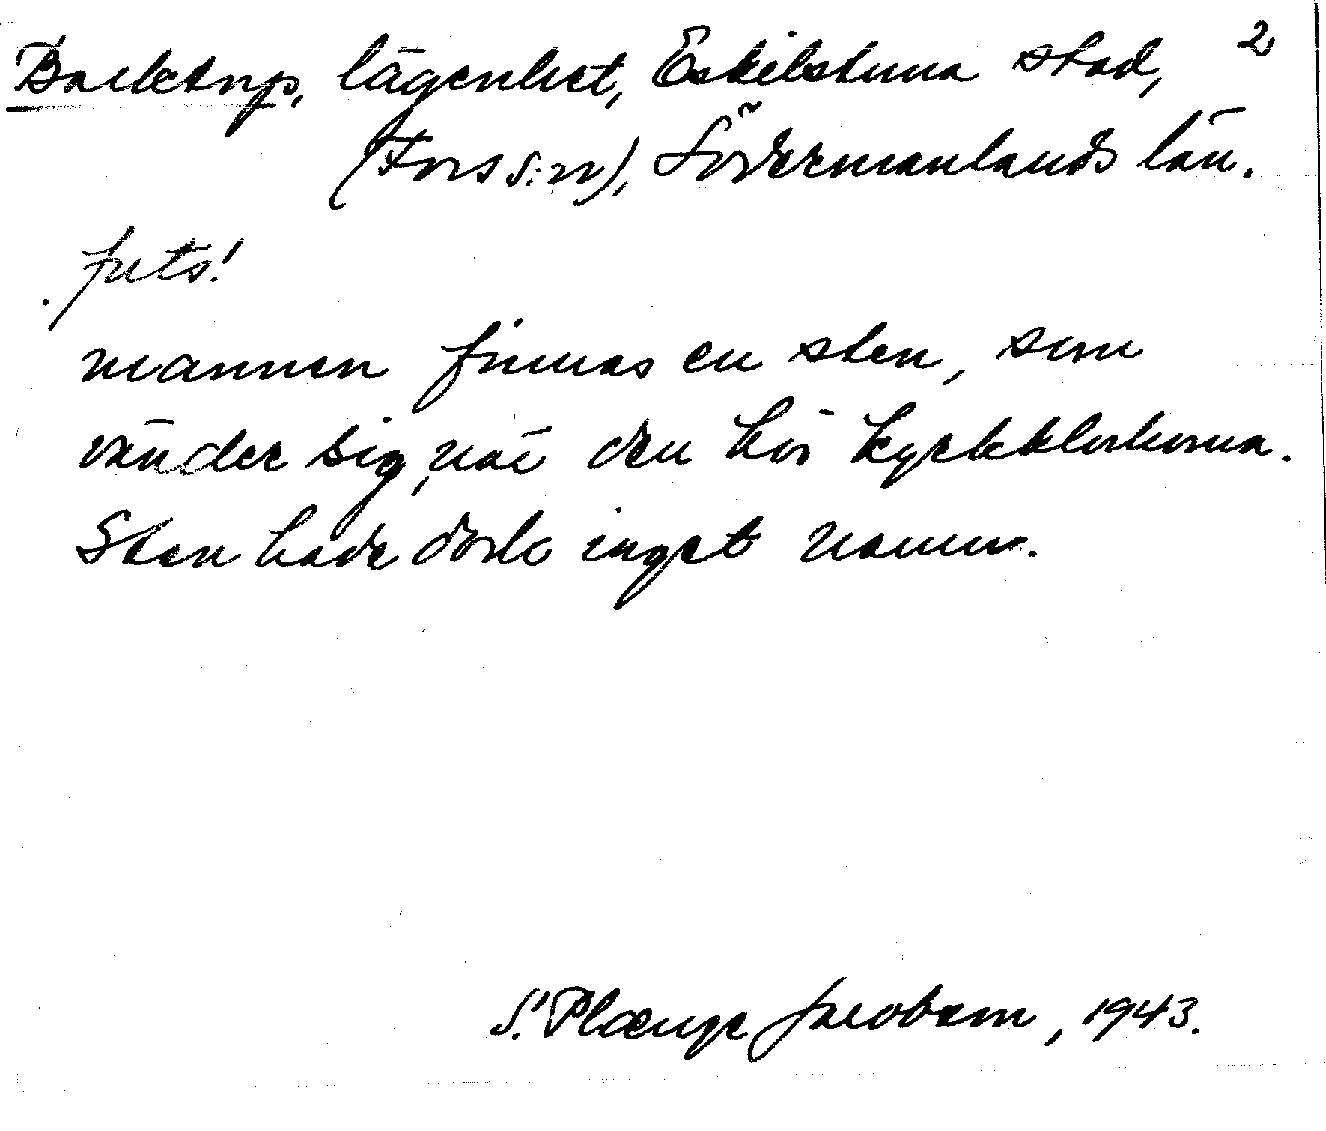 Backtorp, lägenhet, Eskilstuna stad, 2
(Fors s:n), Södermanlands län.
forts!
mannen finnas en sten, som
vänder sig, när den hör kyrkklockorna.
Sten hade dock inget namn.
S. Plænge Jacobson, 1943.